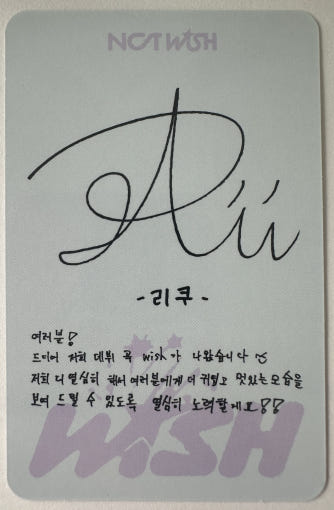 NCT WISH
Rii
-리쿠-
여러분!
드디어 저희 데뷔 곡 wish가 나왔습니다
저희 더 열심히 해서 여러분에게 더 귀엽고 멋있는 모습을
보여 드릴 수 있도록 열심히 노력할게요!!
WISH